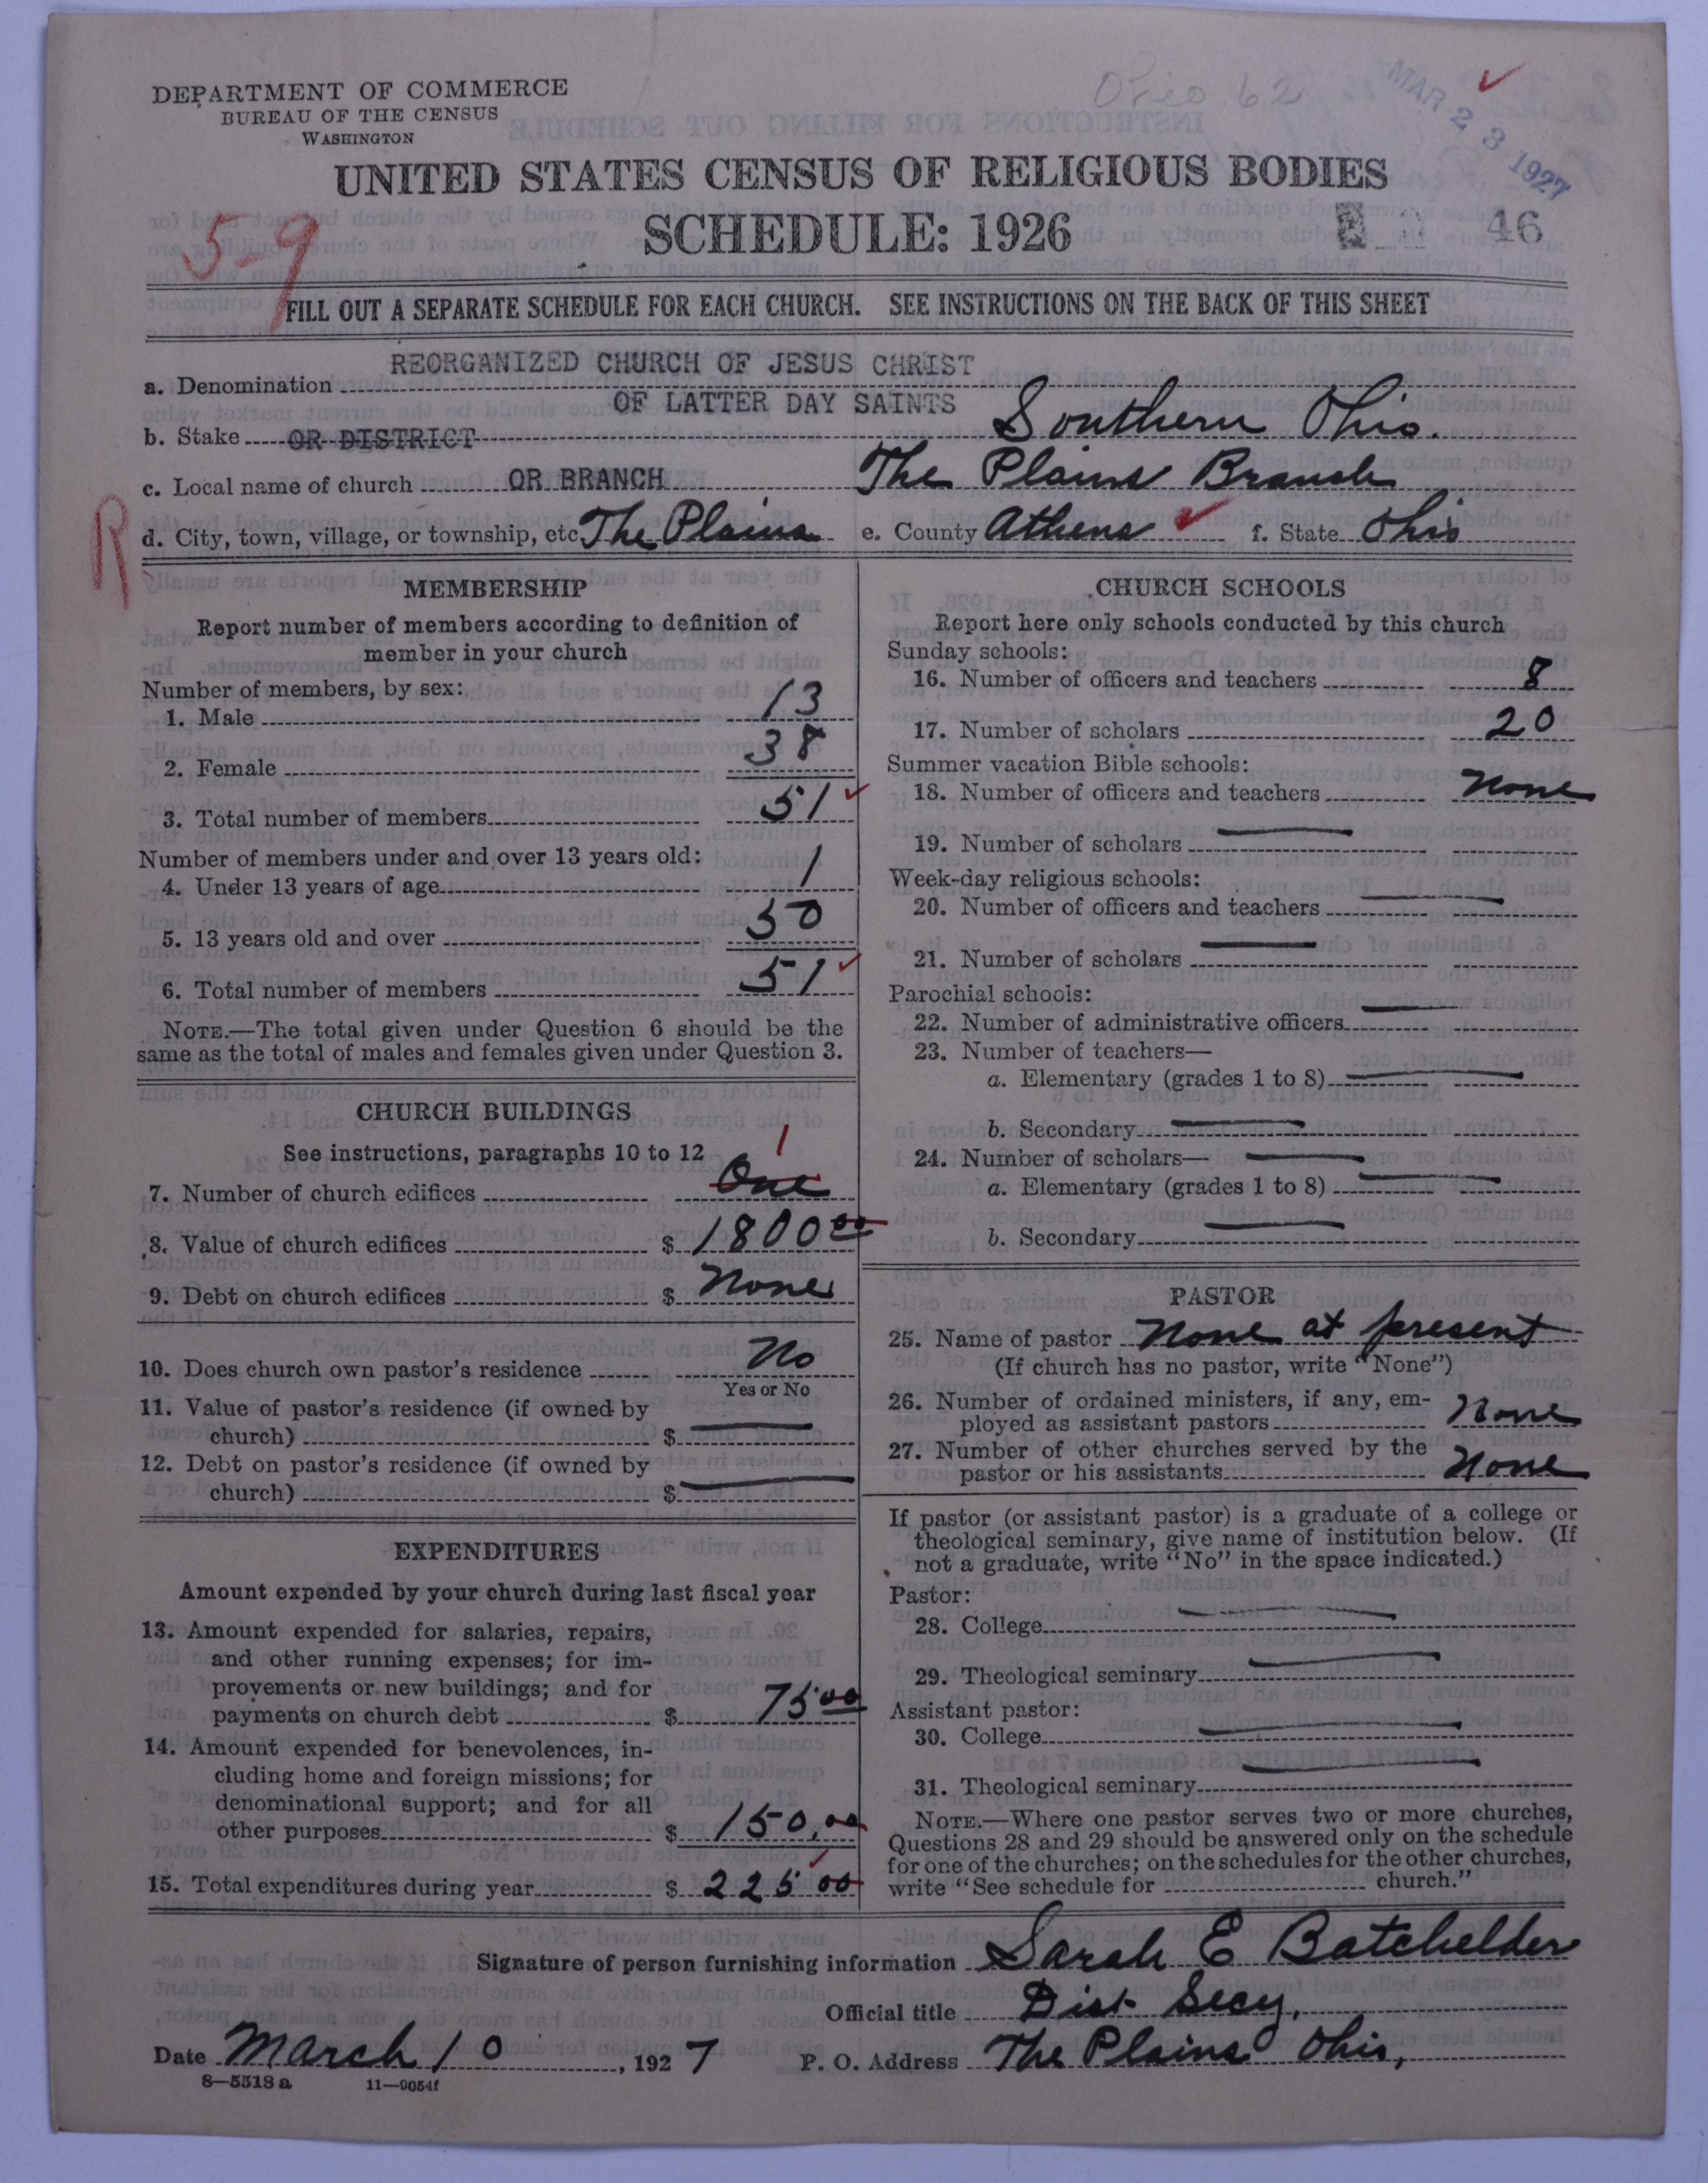 DEPARTMENT OF COMMERCE
BUREAU OF THE CENSUS
WASHINGTON
Ohio 62
MAR 23 1927
UNITED STATES CENSUS OF RELIGIOUS BODIES
SCHEDULE: 1926
5-9
46
FILL OUT A SEPARATE SCHEDULE FOR EACH CHURCH. SEE INSTRUCTIONS ON THE BACK OF THIS SHEET
a. Denomination REORGANIZED CHURCH OF JESUS CHRIST
OF LATTER DAY SAINTS
b. Stake OR DISTRICT Southern Ohio.
c. Local name of church OR BRANCH The Plains Branch
R
d. City, town, village, or township, etc The Plains e. County Athens f. State Ohio
MEMBERSHIP
Report number of members according to definition of
member in your church
Number of members, by sex:
1. Male 13
2. Female 38
3. Total number of members 51
Number of members under and over 13 years old:
4. Under 13 years of age 1
5. 13 years old and over 50
6. Total number of members 51
NOTE.—The total given under Question 6 should be the
same as the total of males and females given under Question 3.
CHURCH BUILDINGS
See instructions, paragraphs 10 to 12
1
7. Number of church edifices One
8. Value of church edifices $ 1800 00
9. Debt on church edifices $ None
10. Does church own pastor's residence No
Yes or No
11. Value of pastor's residence (if owned by
church) $
12. Debt on pastor's residence (if owned by
church) $
EXPENDITURES
Amount expended by your church during last fiscal year
13. Amount expended for salaries, repairs,
and other running expenses; for im-
provements or new buildings; and for
payments on church debt $ 75 00
14. Amount expended for benevolences, in-
cluding home and foreign missions; for
denominational support; and for all
other purposes $ 150.00
15. Total expenditures during year $ 225 00
CHURCH SCHOOLS
Report here only schools conducted by this church
Sunday schools:
16. Number of officers and teachers 8
17. Number of scholars 20
Summer vacation Bible schools:
18. Number of officers and teachers None
19. Number of scholars
Week-day religious schools:
20. Number of officers and teachers
21. Number of scholars
Parochial schools:
22. Number of administrative officers
23. Number of teachers—
a. Elementary (grades 1 to 8)
b. Secondary
24. Number of scholars—
a. Elementary (grades 1 to 8)
b. Secondary
PASTOR
25. Name of pastor None at present
(If church has no pastor, write "None")
26. Number of ordained ministers, if any, em-
ployed as assistant pastors None
27. Number of other churches served by the
pastor or his assistants None
If pastor (or assistant pastor) is a graduate of a college or
theological seminary, give name of institution below. (If
not a graduate, write "No" in the space indicated.)
Pastor:
28. College
29. Theological seminary
Assistant pastor:
30. College
31. Theological seminary
NOTE.—Where one pastor serves two or more churches,
Questions 28 and 29 should be answered only on the schedule
for one of the churches; on the schedules for the other churches,
write "See schedule for church."
Signature of person furnishing information Sarah E Batchelder
Official title Dist Secy.
Date March 10, 1927 P. O. Address The Plains Ohio,
8—5518a 11—9054f